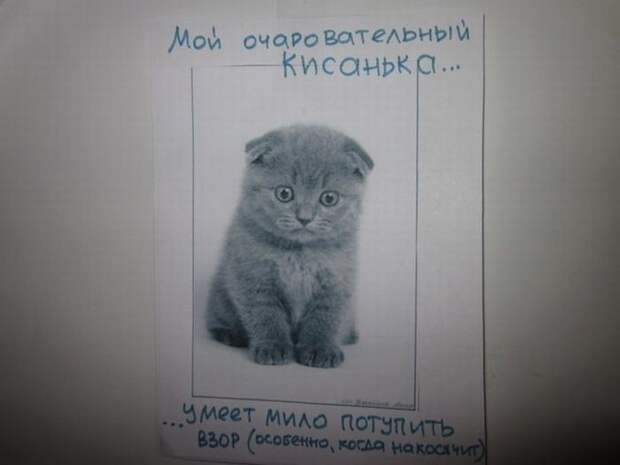 Мой очаровательный
Кисанька...
...умеет мило потупить
взор (особенно, когда накосячит)